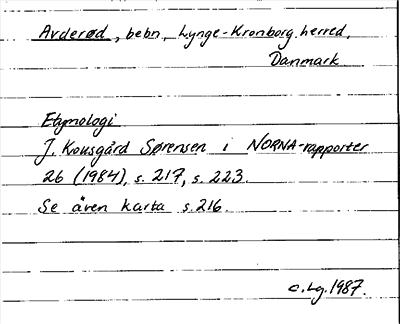 Avderød, bebn., Lynge-Kronborg herred,
Danmark
Etymologi
J. Kousgård Sørensen i NORNA-rapporter
26 (1984), s. 217, s. 223.
Se även karta s. 216.
C. Lg. 1987.